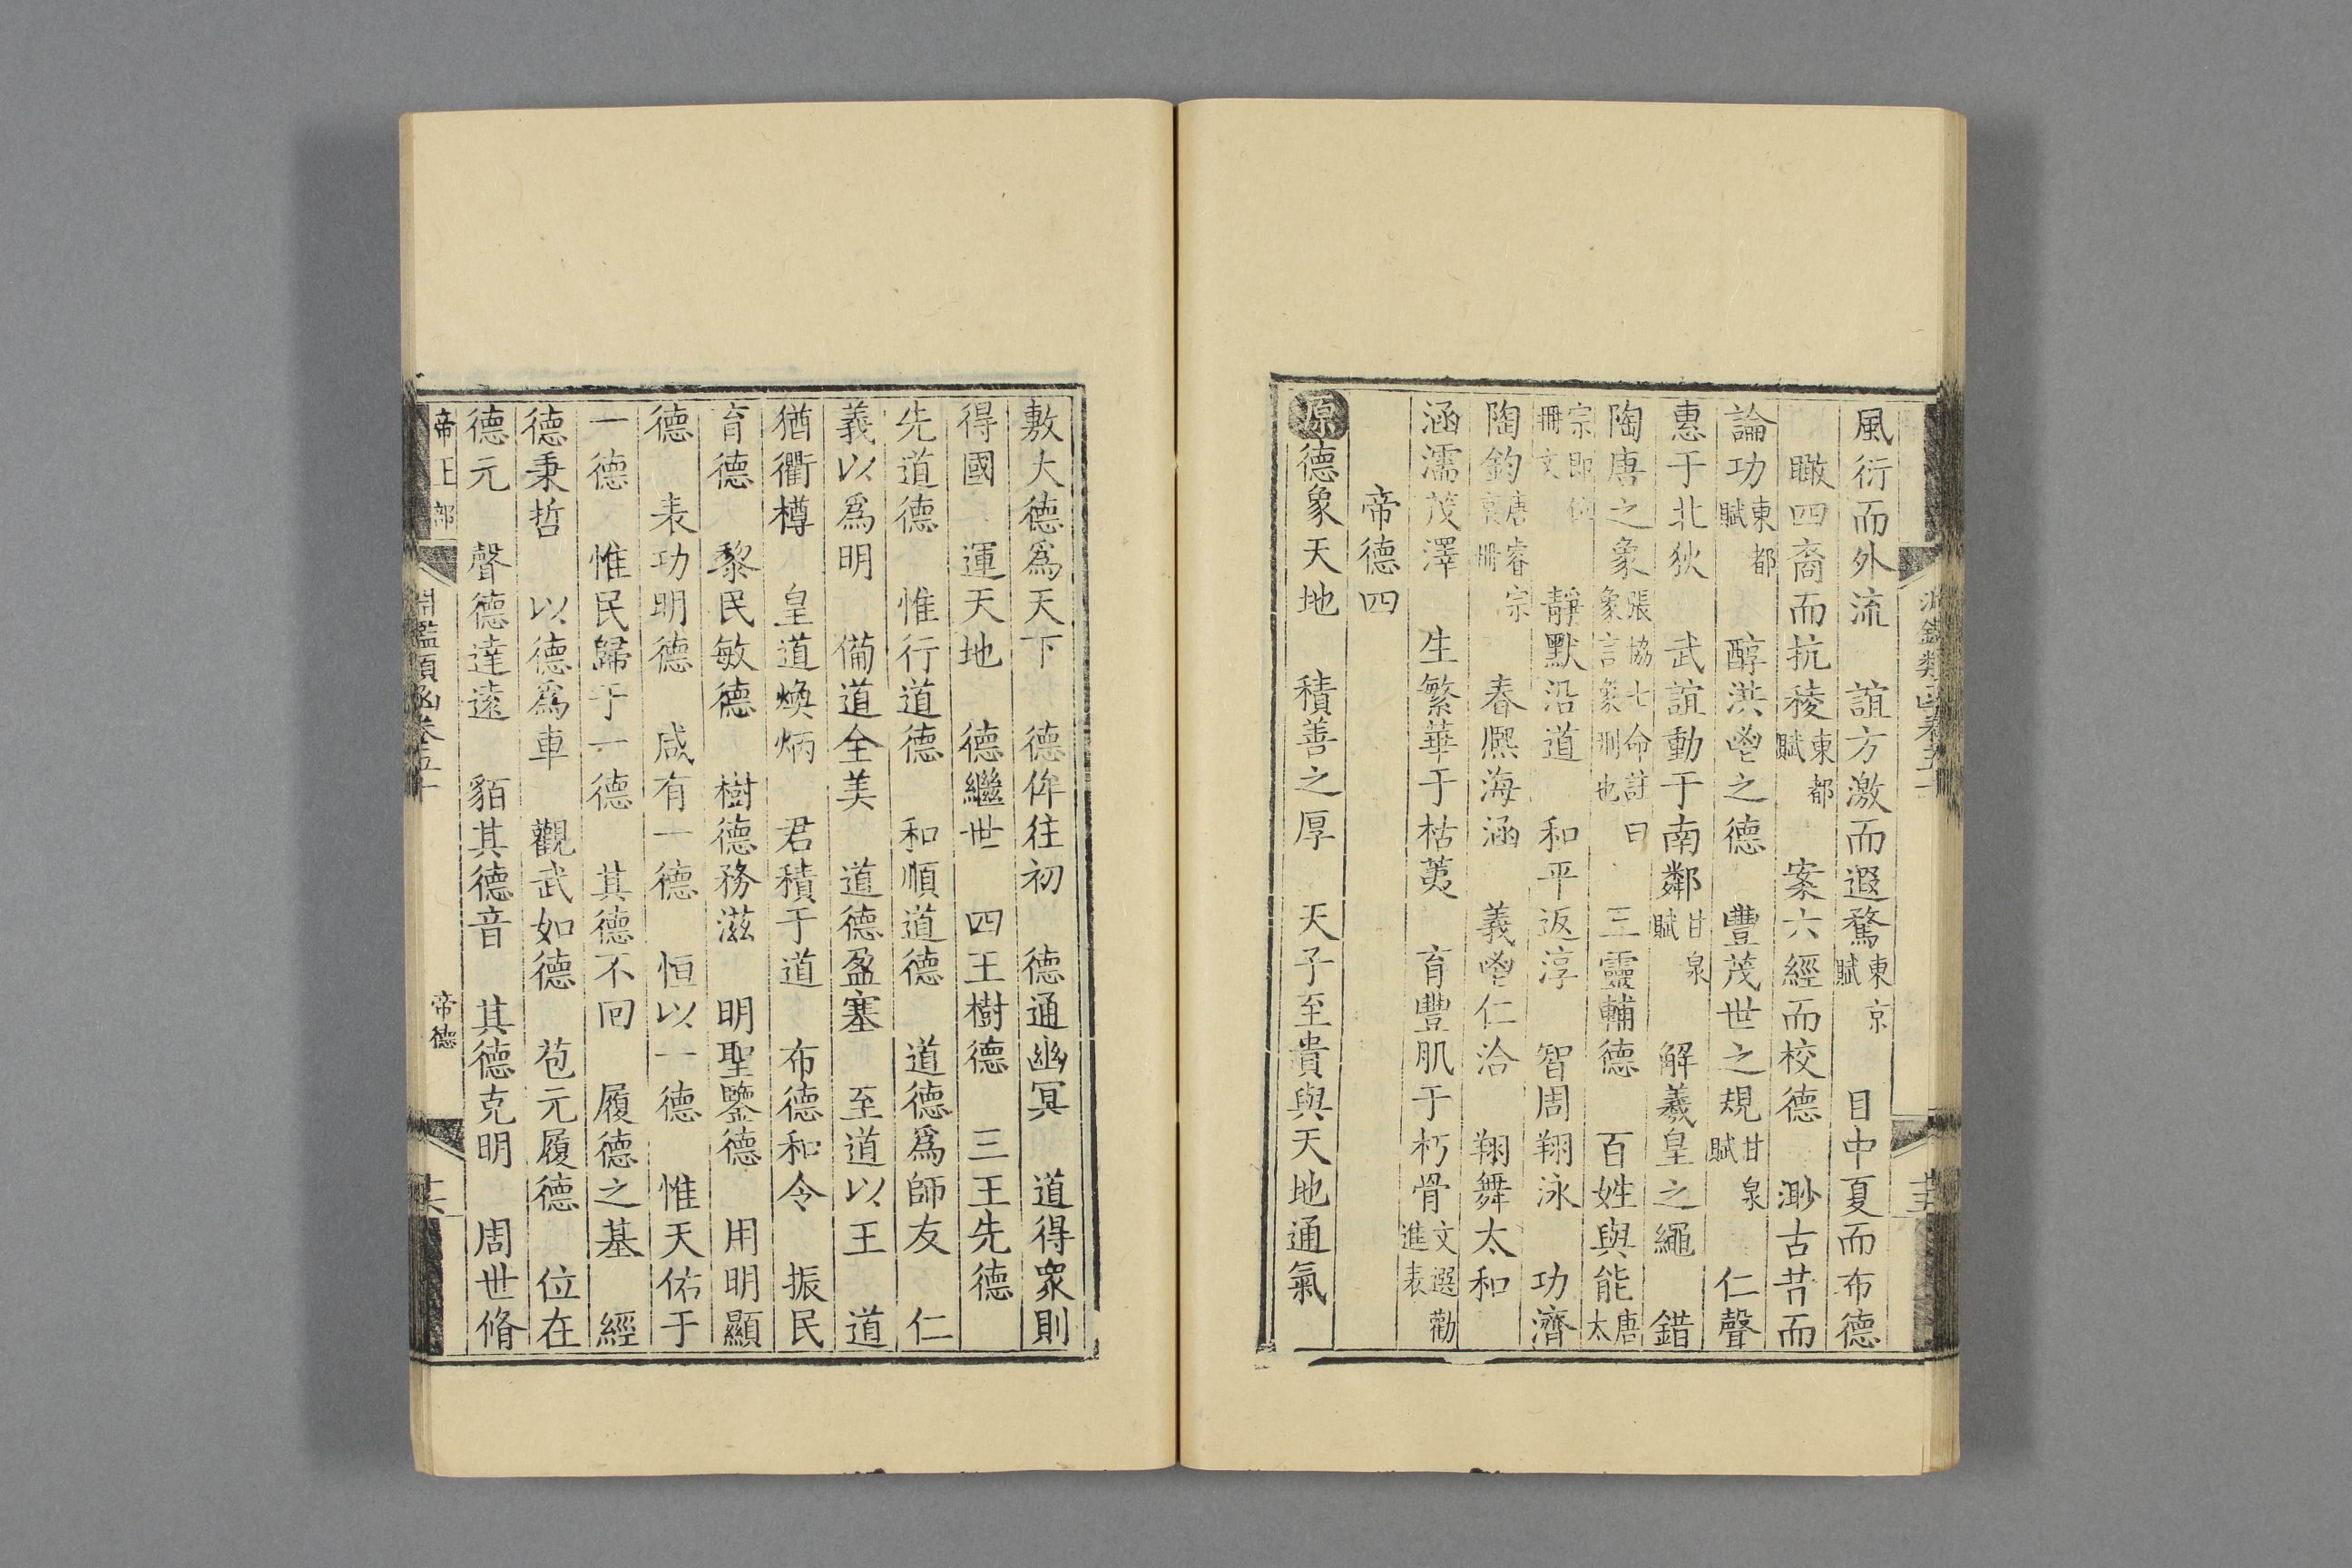 風衍而外流　誼方激而遐騖東京賦　目中夏而布德
瞰四裔而抗稜東都賦　案六經而校德　眇古昔而
論功東都賦　醇洪鬯之德　豐茂世之規甘泉賦　仁聲
惠于北狄　武誼動于南鄰甘泉賦　解羲皇之繩　錯
陶唐之象張協七命註曰象言象刑也　三靈輔德　百姓與能唐太
宗即位冊文　靜默沿道　和平返淳　智周翔泳　功濟
陶鈞唐睿宗哀冊　春煕海涵　義鬯仁洽　翔舞太和
涵濡茂澤　生繁華于枯荑　育豐肌于朽骨文選勸進表
帝德四
原德象天地　積善之厚　天子至貴與天地通氣
敷大德爲天下　德侔往初　德通幽冥　道得衆則
得國　運天地　德繼世　四王樹德　三王先德
先道德　惟行道德　和順道德　道德爲師友　仁
義以爲明　備道全美　道德盈塞　至道以王　道
猶衢樽　皇道煥炳　君積于道　布德和令　振民
育德　黎民敏德　樹德務滋　明聖鑒德　用明顯
德　表功明德　咸有一德　恒以一德　惟天佑于
一德　惟民歸于一德　其德不回　履德之基　經
德秉哲　以德爲車　觀武如德　苞元履德　位在
德元　聲德達遠　貊其德音　其德克明　周世脩
帝王部　淵鑑類函卷五十　帝德